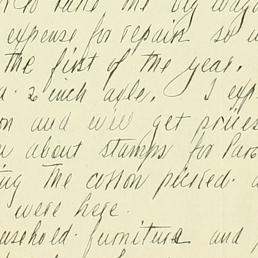 to take the big wago
expense for repair so w
the first of the year.
a 2 inch axle. I exp
on and will get prices
about stamps for Paro
ing the cotton picked. a
were here.
usehold furniture and